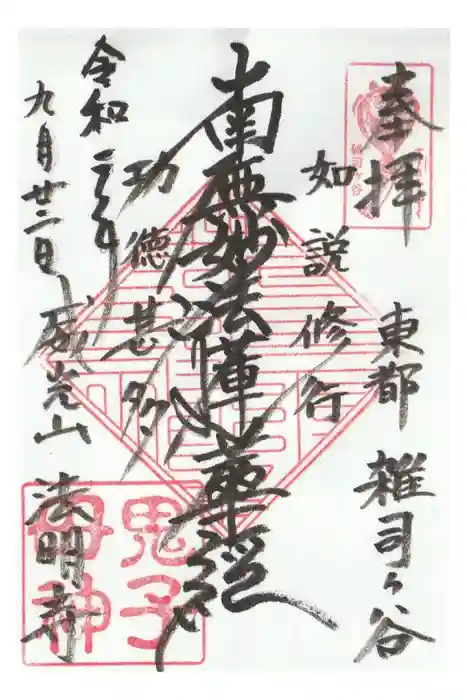 奉拝
雑司ヶ谷
東都 雑司ヶ谷
如説修行
南無妙法蓮華經
功徳甚多
令和二年
九月廿二日
威光山 法明寺
鬼子母神